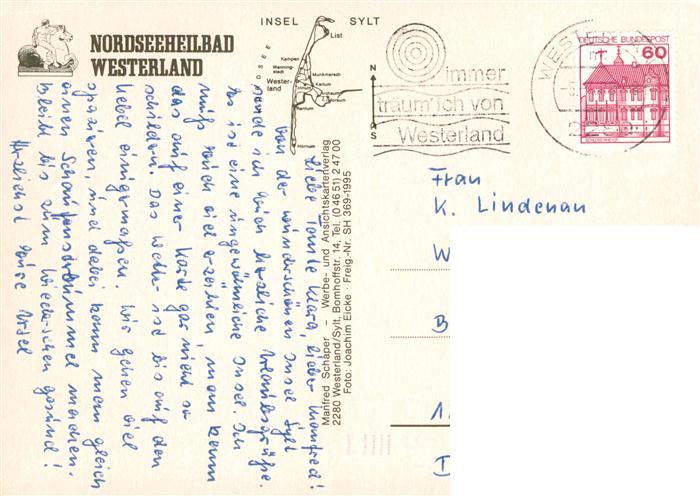 NORDSEEHEILBAD
WESTERLAND
INSEL SYLT
NORDSEE
List
Kampen
Wenning-
stedt
Wester-
land
Munkmarsch
Keitum
Archsum
Morsum
Rantum
Hörnum
N
S
immer
träum' ich von
Westerland
WESTE
DEUTSCHE BUNDESPOST
60
Liebe Tante Klara, lieber Manfred!
Von der wunderschönen Insel Sylt
sende ich Euch herzliche Urlaubsgrüße.
Es ist eine ungewöhnliche Insel. Ich
muß Euch viel erzählen, man kann
das auf einer Karte gar nicht so
schildern. Das Wetter ist bis auf den
Nebel einigermaßen. Wir gehen viel
spazieren, und dabei kann man gleich
einen Schaufensterbummel machen.
Bleibt bis zum Wiedersehen gesund!
Herzlichst Eure
Manfred Schäper – Werbe- und Ansichtskartenverlag
2280 Westerland/Sylt, Bomhoffstr. 14, Tel. (0 46 51) 2 47 00
Foto: Joachim Eicke · Freig.-Nr. SH 369-1995
Frau
K. Lindenau
W
B
1
D